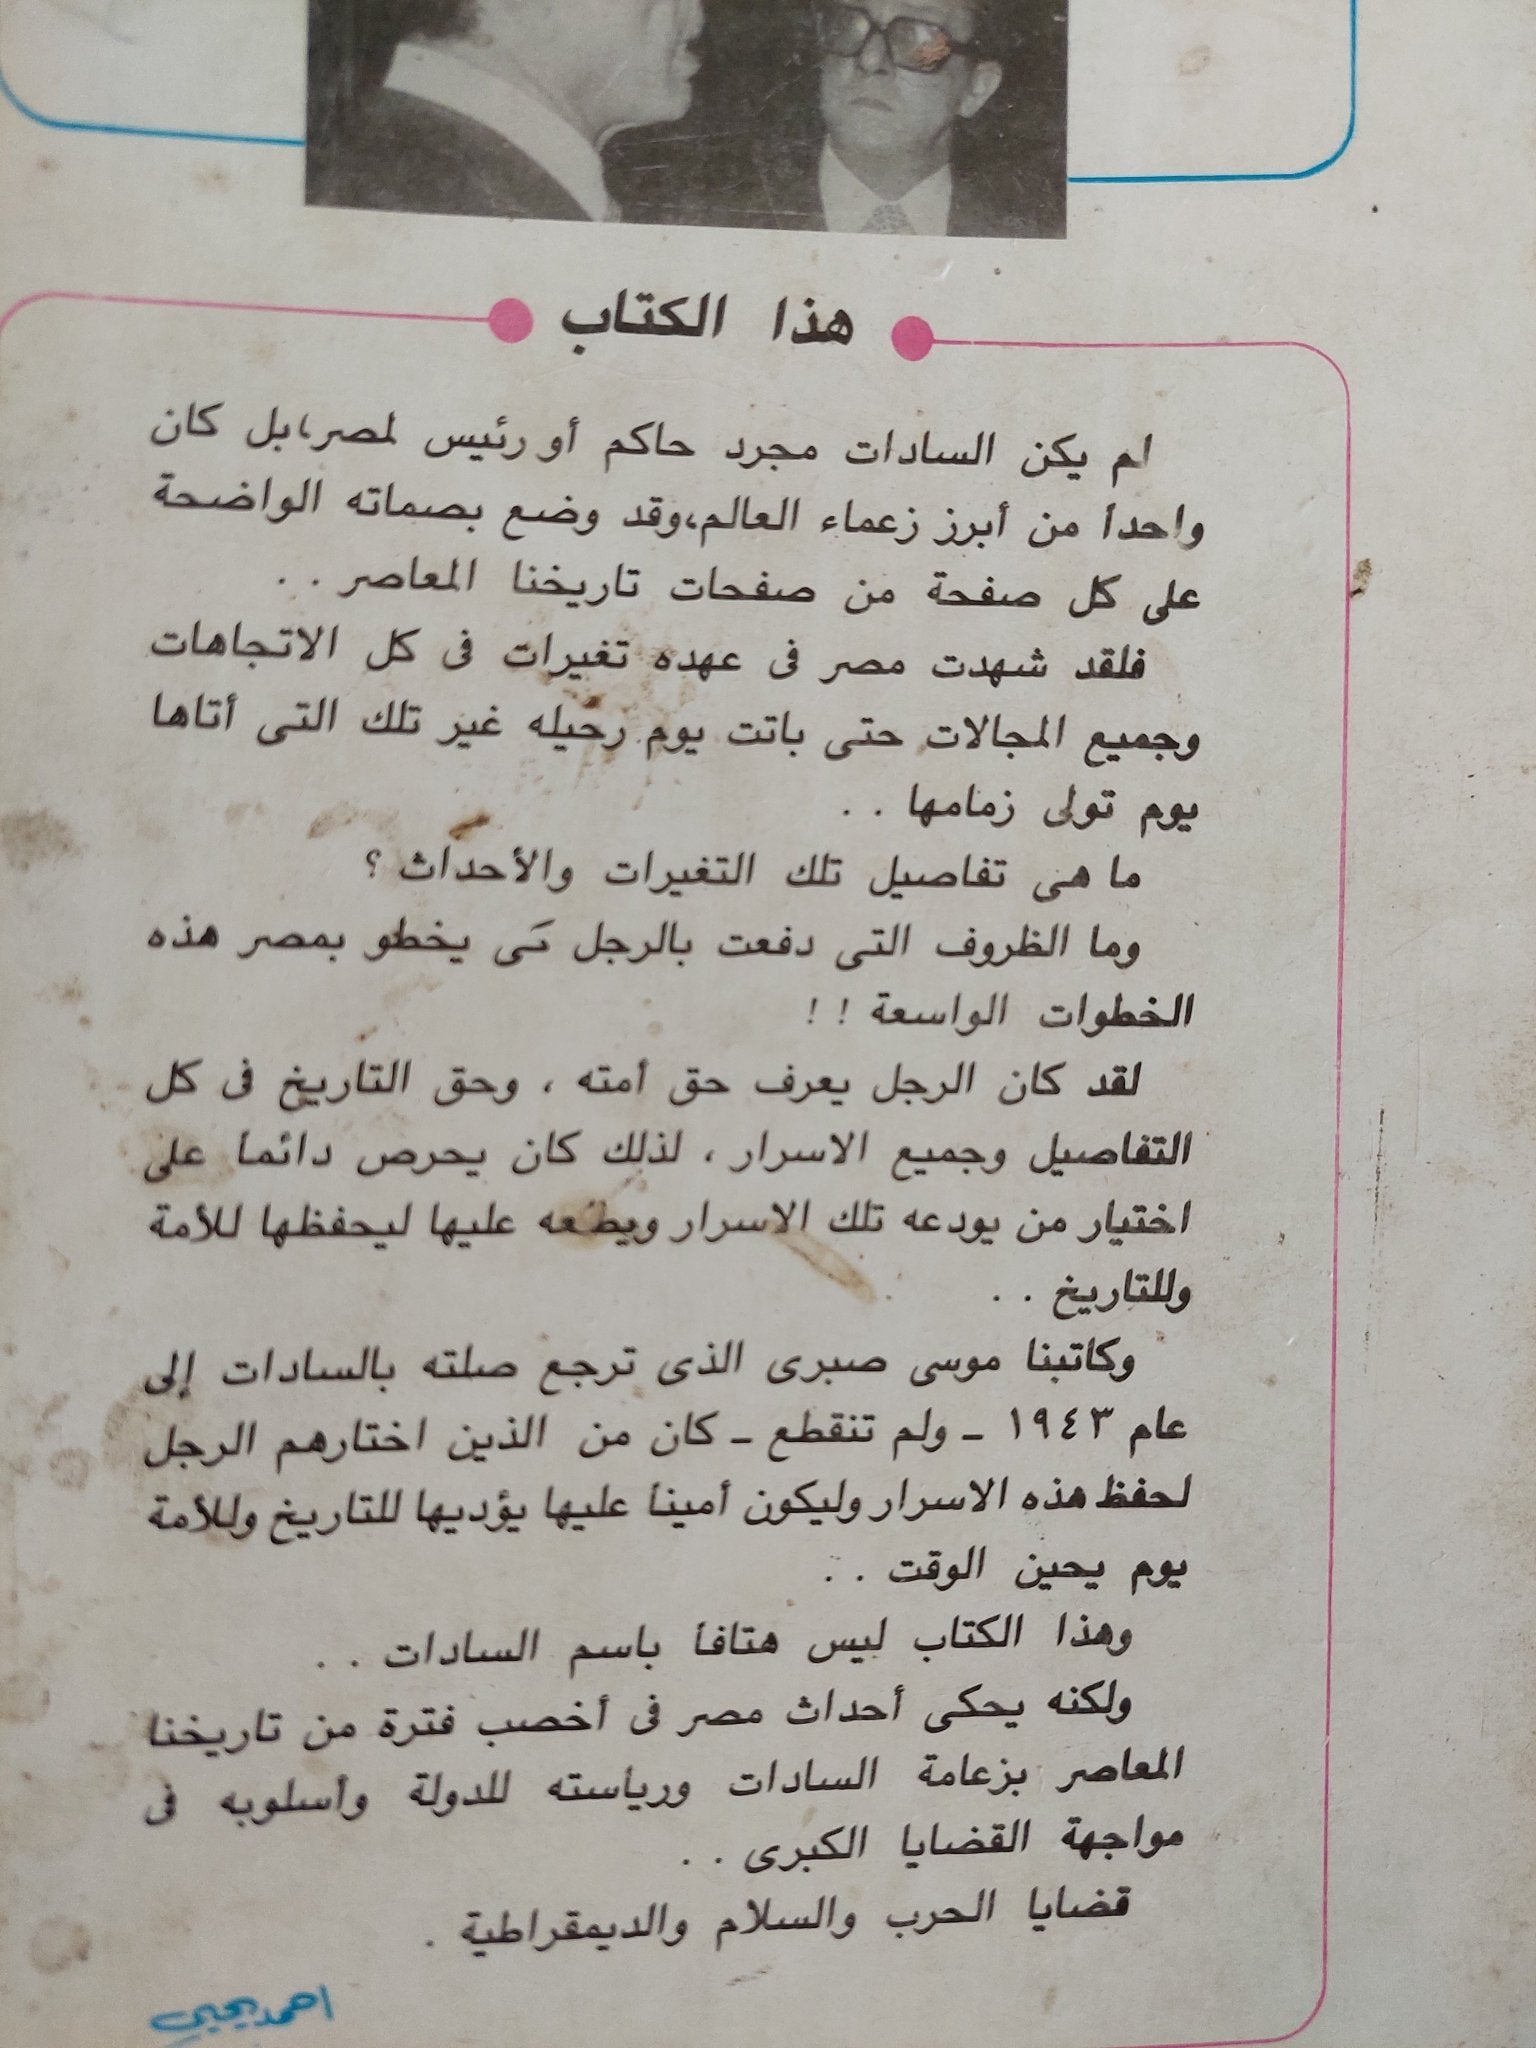 هذا الكتاب
لم يكن السادات مجرد حاكم أو رئيس لمصر، بل كان
واحداً من أبرز زعماء العالم، وقد وضع بصماته الواضحة
على كل صفحة من صفحات تاريخنا المعاصر . .
فلقد شهدت مصر فى عهده تغيرات فى كل الاتجاهات
وجميع المجالات حتى باتت يوم رحيله غير تلك التى أتاها
يوم تولى زمامها . .
ما هى تفاصيل تلك التغيرات والأحداث ؟
وما الظروف التى دفعت بالرجل كى يخطو بمصر هذه
الخطوات الواسعة ! !
لقد كان الرجل يعرف حق أمته ، وحق التاريخ فى كل
التفاصيل وجميع الاسرار ، لذلك كان يحرص دائماً على
اختيار من يودعه تلك الاسرار ويطلعه عليها ليحفظها للأمة
وللتاريخ . .
وكاتبنا موسى صبرى الذى ترجع صلته بالسادات إلى
عام ١٩٤٣ ـ ولم تنقطع ـ كان من الذين اختارهم الرجل
لحفظ هذه الاسرار وليكون أميناً عليها يؤديها للتاريخ وللأمة
يوم يحين الوقت . .
وهذا الكتاب ليس هتافاً باسم السادات . .
ولكنه يحكى أحداث مصر فى أخصب فترة من تاريخنا
المعاصر بزعامة السادات ورياسته للدولة وأسلوبه فى
مواجهة القضايا الكبرى . .
قضايا الحرب والسلام والديمقراطية .
احمد يحيي